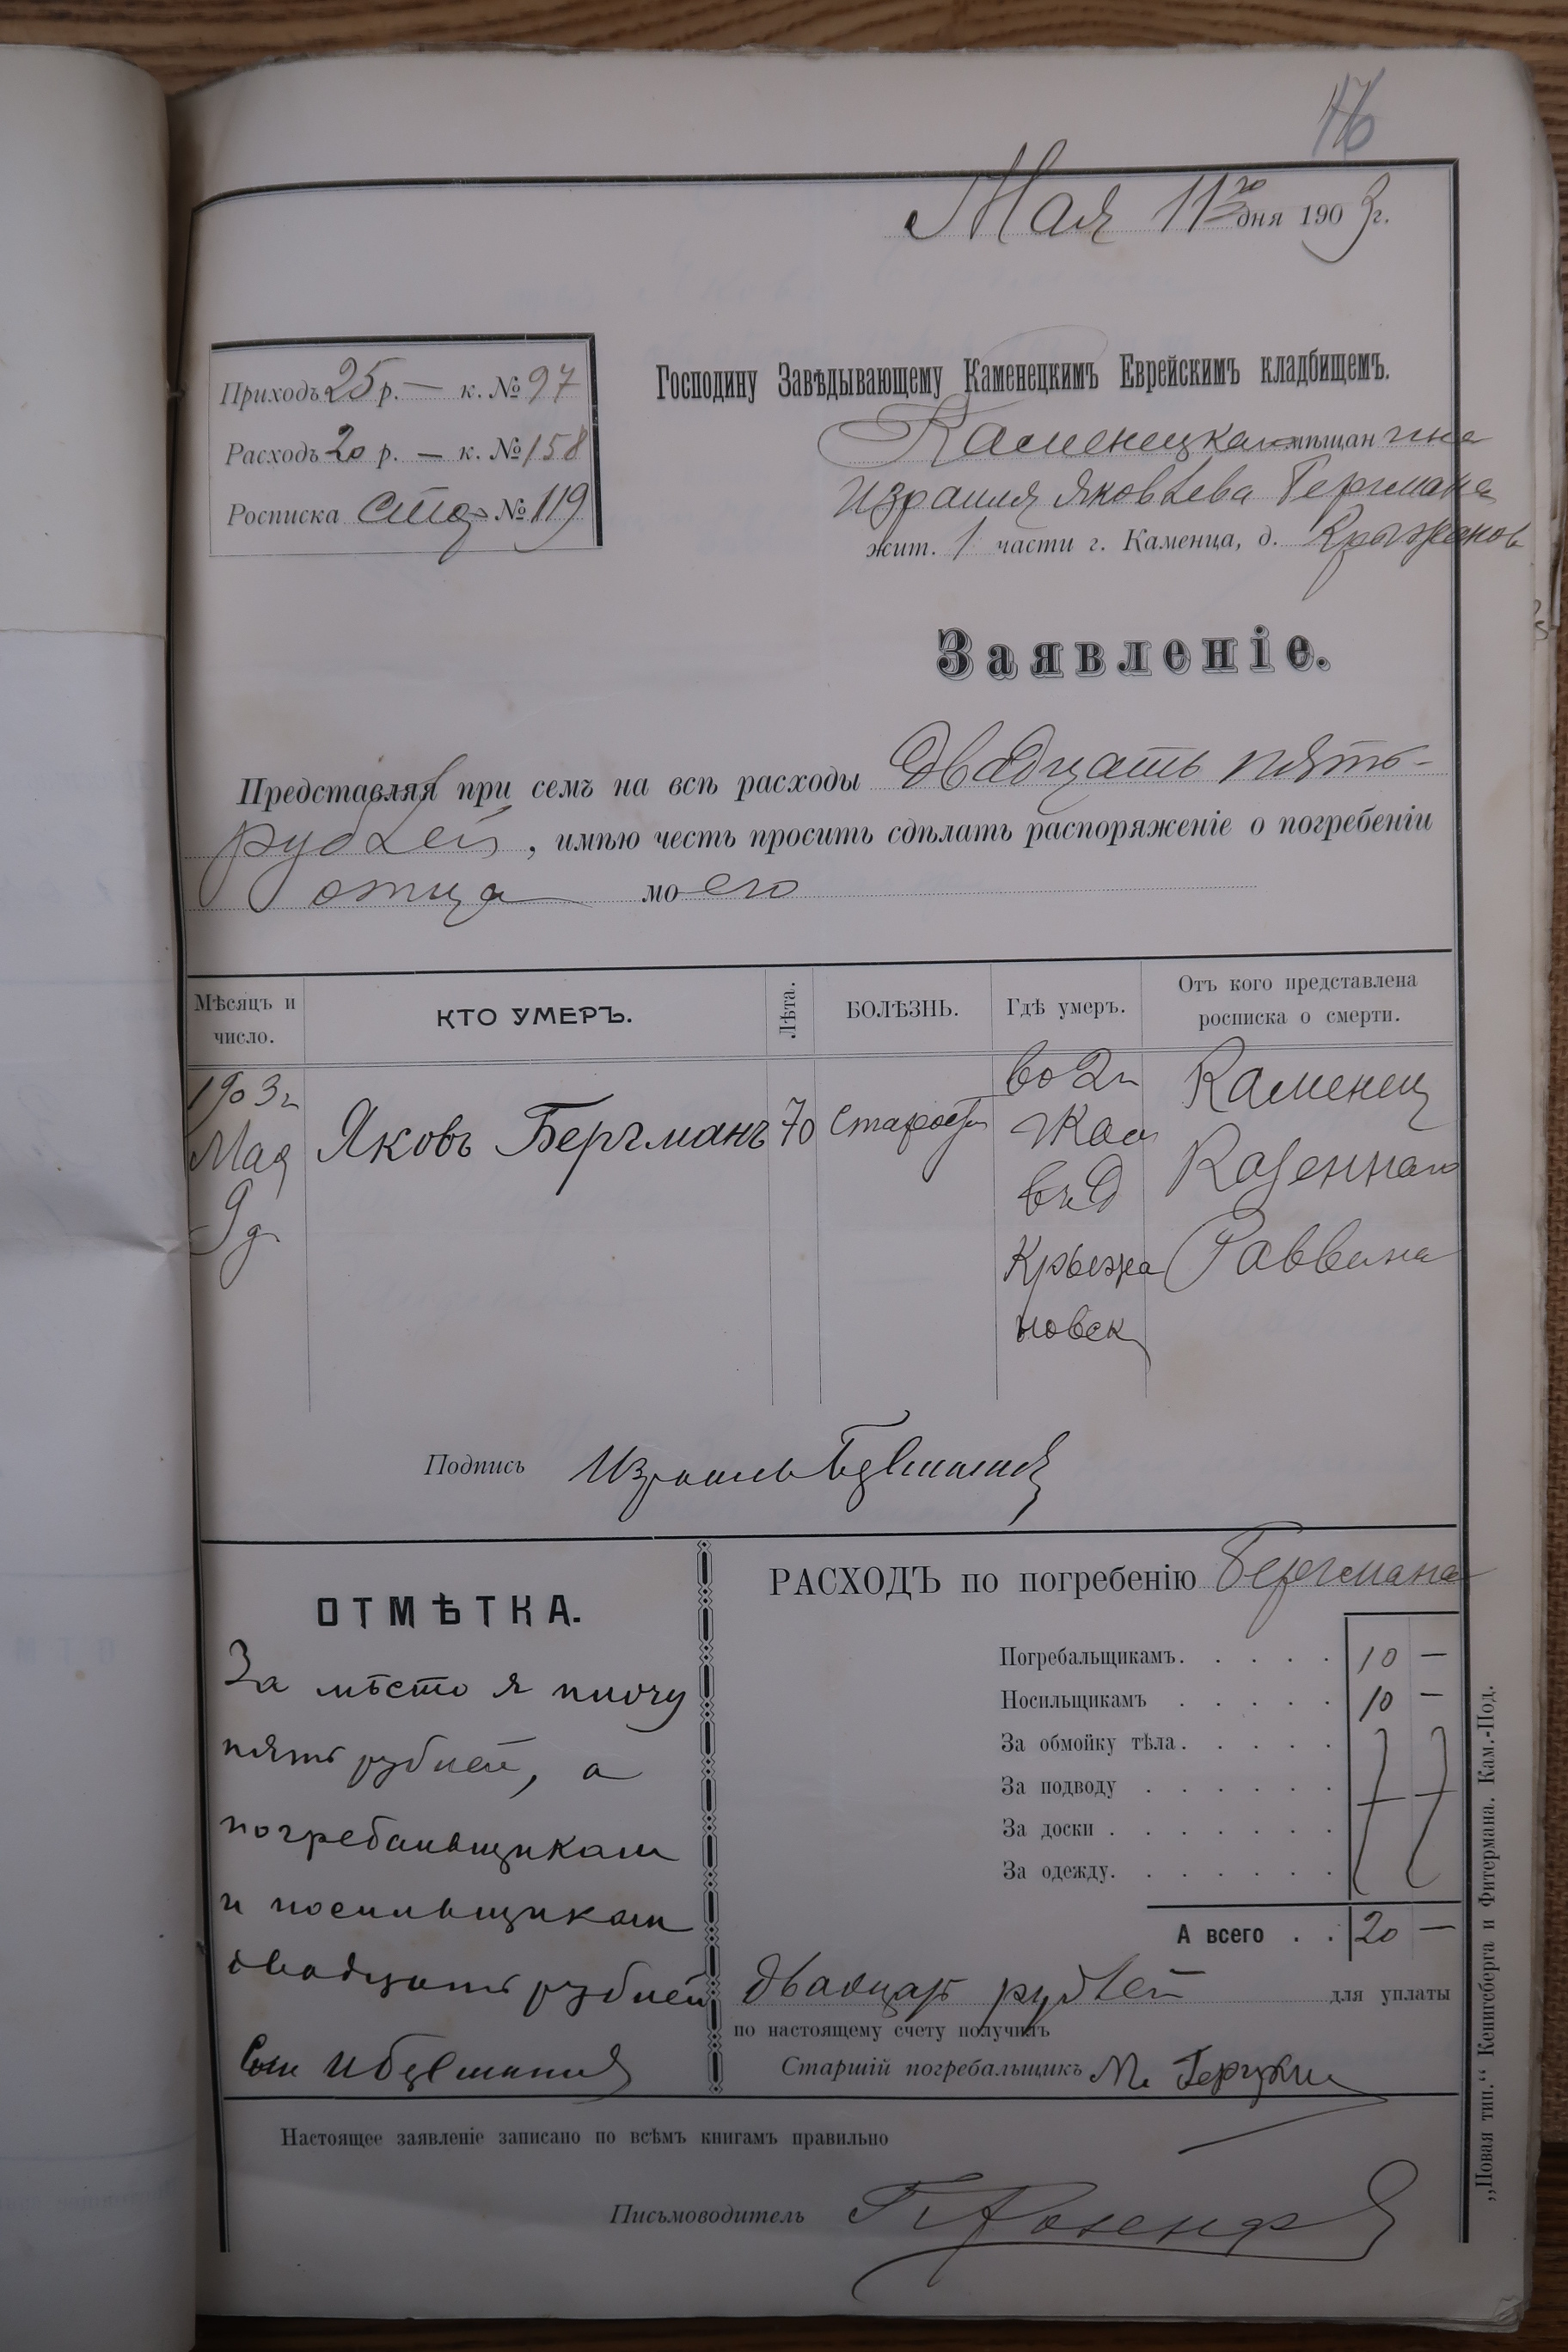 46
Мая 11го дня 1903 г.
Приходъ 25 р. — к. № 97
Расходъ 20 р. — к. № 158
Росписка № 119
Господину Завѣдывающему Каменецкимъ Еврейскимъ кладбищемъ.
Каменецкаго мѣщанина
Израиля Яковлева Бергмана
жит. 1 части г. Каменца, д. Крыжанов
Заявленіе.
Представляя при семъ на всѣ расходы двадцать пять
рублей, имѣю честь просить сдѣлать распоряженіе о погребеніи
отца моего
Мѣсяцъ и число.
КТО УМЕРЪ.
Лѣта.
БОЛѢЗНЬ.
Гдѣ умеръ.
Отъ кого представлена росписка о смерти.
1903 г
Мая
9 д
Яковъ Бергманъ
70
Старость
во 2й
въ д
Крыжа
новск
Каменец
Казеннаго
Раввина
Подпись Израиль
ОТМѢТКА.
За мѣсто я плочу
пять рублей, а
погребальщикам
и носильщикам
двадцать рублей
РАСХОДЪ по погребенію Бергмана
Погребальщикамъ. . . . . 10 —
Носильщикамъ . . . . . 10 —
За обмойку тѣла. . . . .
За подводу . . . . . .
За доски . . . . . . .
За одежду. . . . . . .
А всего . . 20 —
двадцать рублей для уплаты
по настоящему счету получилъ
Старшій погребальщикъ М.
Настоящее заявленіе записано по всѣмъ книгамъ правильно
Письмоводитель
„Новая тип.“ Кенигсберга и Фитермана. Кам.-Под.